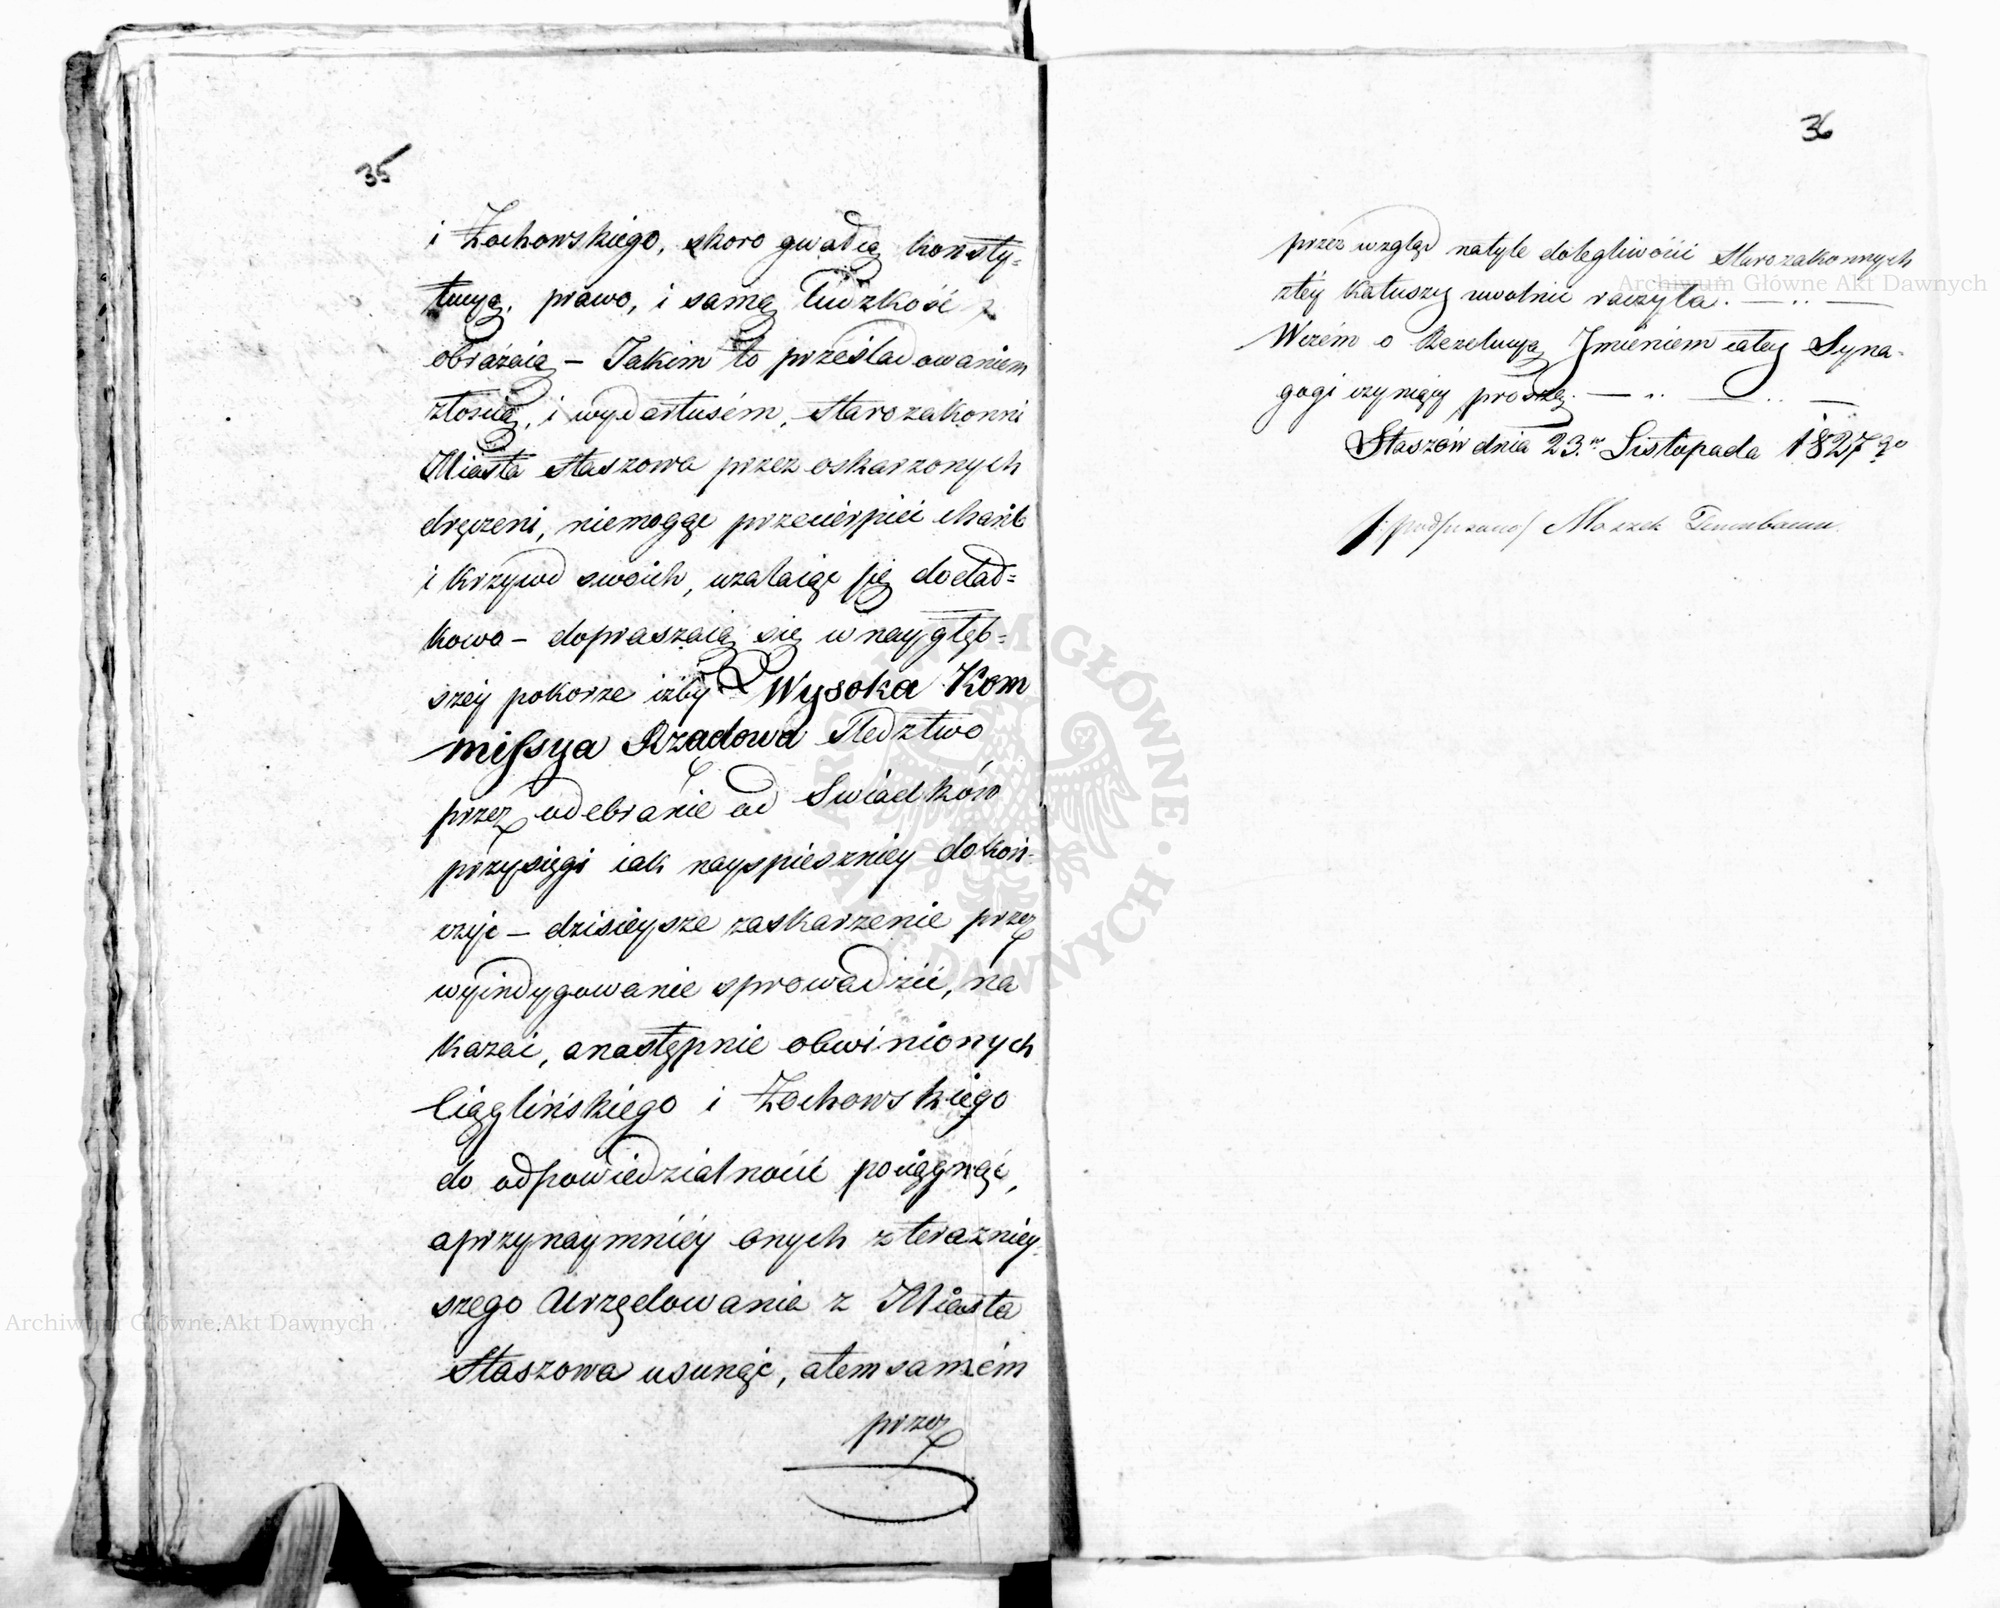 35
i Żochowskiego, skoro gwałcą konsty=
tucyą, prawo, i samą ludzkość
obrażaią – Takim to prześladowaniem
złością, i wydartusém, Starozakonni
Miasta Staszowa przez oskarzonych
dręczeni, niemogąc przecierpieć chańb
i krzywd swoich, uzalaiąc się dodad=
kowo – dopraszaią się w naygłęb=
szey pokorze izby Wysoka Kom
missya Rządowa Sledztwo
przez odebranie od Swiadków
przysięgi iak nayspieszniey dokoń-
czyć – dzisieysze zaskarzenie przez
wyindygowanie sprowadzić, na
kazać, anastępnie obwinionych
Ciąglińskiego i Żochowskiego
do odpowiedzialności pociągnąć,
aprzynaymniéy onych z terazniey-
szego Urzędowania z Miasta
Staszowa usunąć, atemsamém
przez
36
przez wzgląd natyle dolegliwości Starozakonnych
ztéy katuszy uwolnić raczyła. — .. —
Wczém o Rezolucyą Imieniem całey Syna-
gogi czyniący proszę. — .. — .. —
Staszów dnia 23. Listopada 1827 go
/: podpisano / Moszek Tenenbaum.
Archiwum Główne Akt Dawnych
Archiwum Główne Akt Dawnych
ARCHIWUM GŁÓWNE AKT DAWNYCH